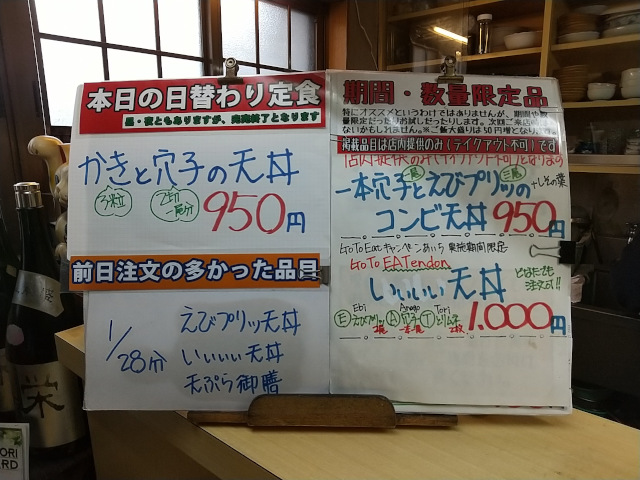 本日の日替わり定食
昼・夜ともありますが、完売終了となります
かきと穴子の天丼
3粒
2切
一尾分
950円
前日注文の多かった品目
1/28分
えびプリッ天丼
いいいい天丼
天ぷら御膳
期間・数量限定品
特にオススメというわけではありませんが、期間や数
量限定だったりお試しだったりします。次回ご来店時
ないかもしれません。※ご飯大盛りは50円増となります。
掲載品目は店内提供のみ(テイクアウト不可)です
一尾
三尾
一本穴子とえびプリッの
+しその葉
コンビ天丼950円
GoToEatキャンペーンあいち 実施期間限定
GoTo EATendon
いいいい天丼
どなたでも
注文可!!
Ebi Anago Tori
Eえびプリッ A穴子 Tとりムネ
2尾 一本 2枚
1.000円
栄
ORI
RD